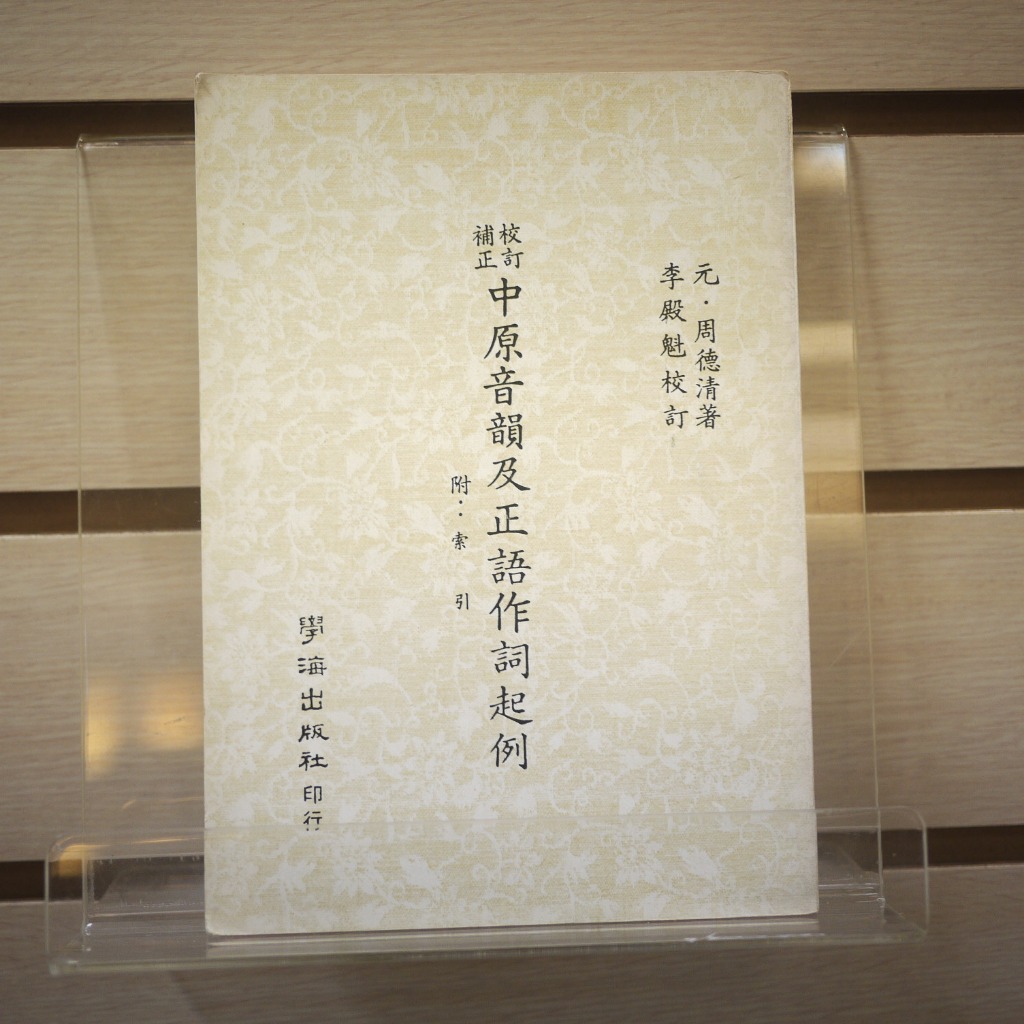 元・周德清著
李殿魁校訂
校訂
補正
中原音韻及正語作詞起例
附：索引
學海出版社印行